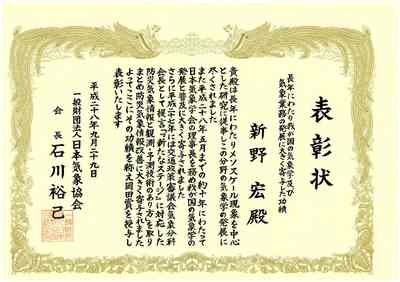 表彰状
長年にわたり我が国の気象学及び
気象業務の発展に大きく寄与した功績
新野 宏 殿
貴殿は長年にわたりメソスケール現象を中心
とした研究に従事しこの分野の気象学の発展に
尽くされました
また平成二十八年五月までの約十年にわたって
日本気象学会の理事長を務め我が国の気象学の
発展と普及に大きく寄与されました
さらに平成二十七年には交通政策審議会気象分科
会長として提言「『新たなステージ』に対応した
防災気象情報と観測・予測技術のあり方」を取り
まとめ防災気象情報改善に大きく寄与されました
よってここにその功績を称え岡田賞を授与し
表彰いたします
平成二十八年九月二十九日
一般財団法人日本気象協会
会長 石川裕己